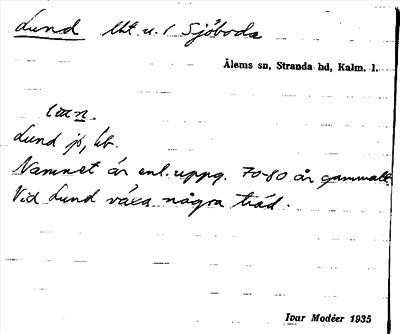 Lund lht u. / Sjöboda
Ålems sn, Stranda hd, Kalm. l.
Lund
Namnet är enl. uppg. 70-80 år gammalt
Vid Lund växa några träd.
Ivar Modéer 1935